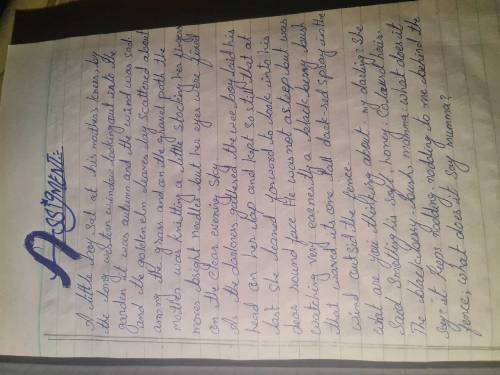 ASSIGNMENT:-
A little boy sat at his mothers knees, by
the long western window, looking out into the
garden. It was autumn, and the wind was sad:
and the golden elm leaves lay scattered about
among the grass, and on the gravel path. The
mother was knitting a little stocking, her fingers
moved bright needles but her eyes were fixed
on the clear evening sky.
As the darkness gathered, the wee boy laid his
head on her lap and kept so still that at
last she leaned forward to look into his
dear round face. He was not asleep, but was
watching very earnestly a black berry bush
that waved its one tall dark-red spray in the
wind outside the fence.
what are you thinking about, my darling? she
said, smoothing his soft, honey coloured hair.
The blackberry-bush, mamma: what does it
say: it keeps nodding, nodding to me behind the
fence, what does it say mumma?